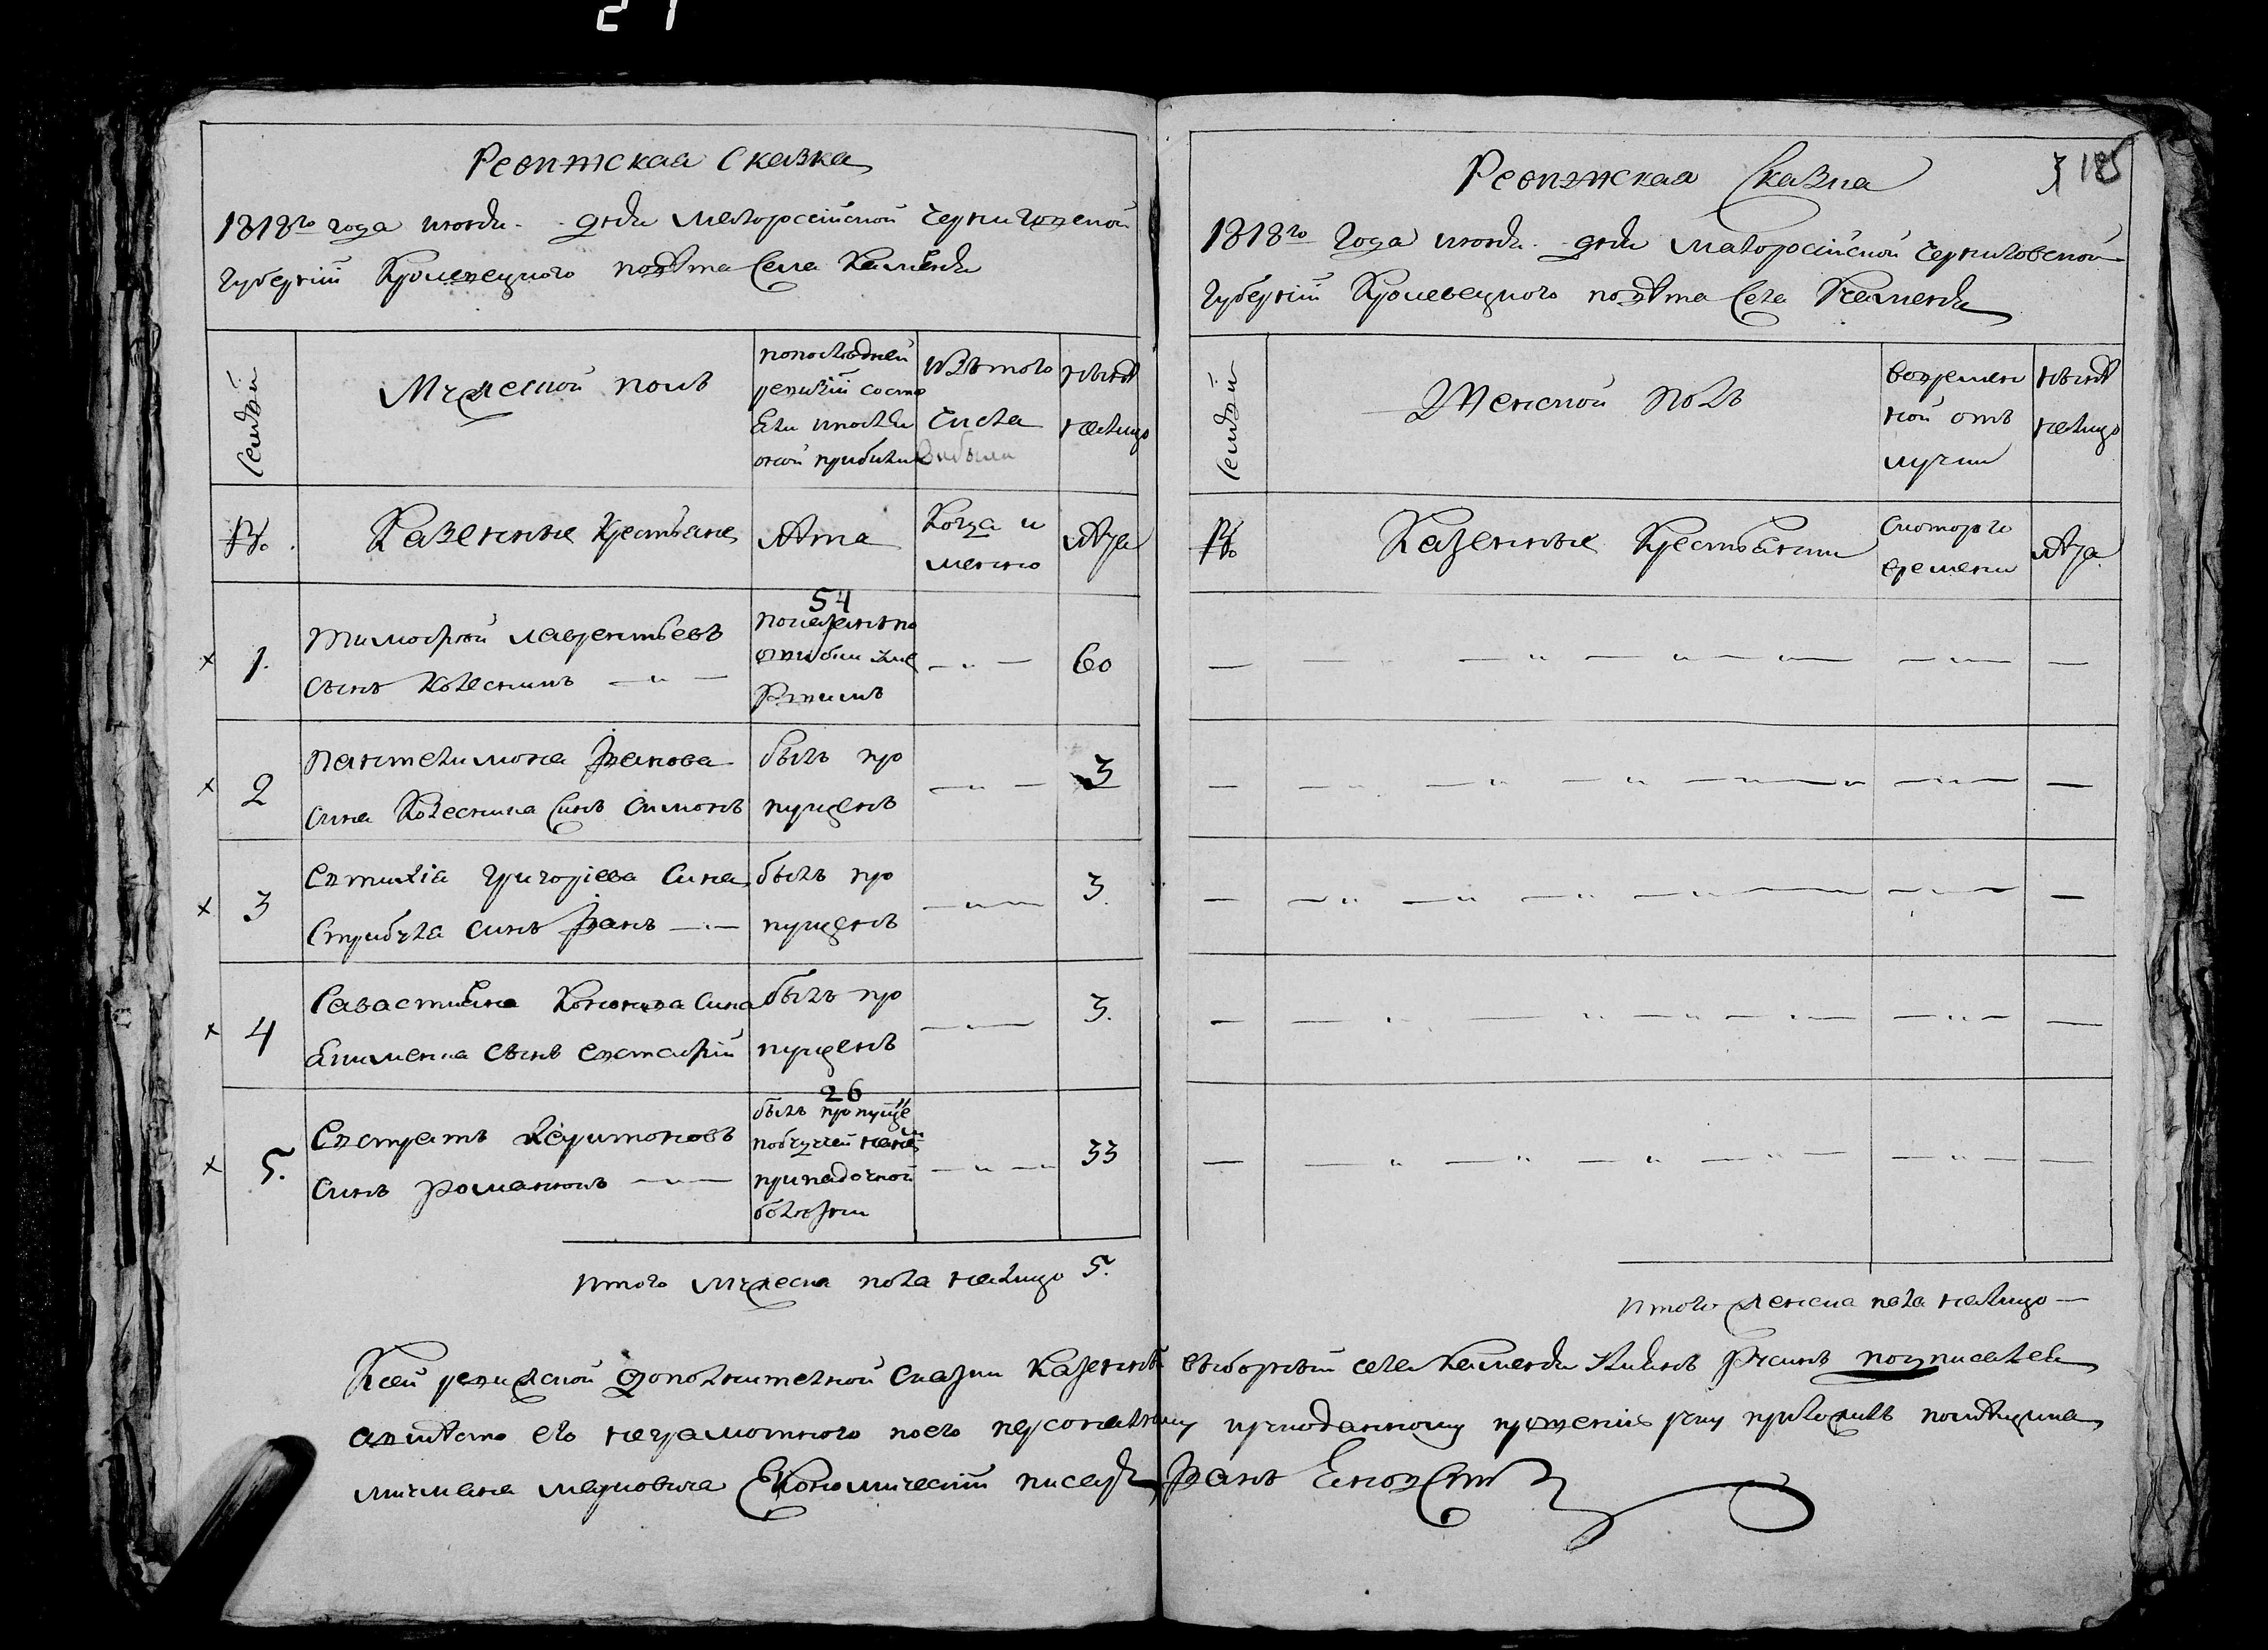 21
Ревижская Сказка
1818го года июня - дня Малоросiйской Черниговской
Губернiи Кролевецкого повѣта Села Каменки
Семьи
Мужеской полъ
попоследней
ревизiи состо
яли ипосли
оной прибили
Изътого
числа
выбыли
Нынѣ
налицо
№
Казенние крестьяне
Лѣта
Когда и
менно
Лѣта
1.
Тимофей Лаврентьевъ
сынъ Колесникъ
54
показанъ по
ошибки уме
ршимъ
60
2
Пантелимона Иванова
сина Колесника синъ Симонъ
былъ про
пущенъ
3
3
Евтихiа Григорiева сина
Стрибула синъ Иванъ
былъ про
пущенъ
3.
4
Савастияна Кононова сина
Якименка сынъ Евстафiй
былъ про
пущенъ
3.
5.
Евстратъ Харитоновъ
синъ Романюкъ
26
былъ пропуще
припадочной
болезни
33
Итого мужеска пола налицо 5.
Ревижская Сказка
3 185
1818го Года июня - дня Малоросiйской Черниговской
Губернiи Кролевецкого повѣта Села Каменки
Семьи
Женской полъ
вовремен
ной отъ
лучки
Нынѣ
налицо
№
Казенные Крестьянки
Скоторого
времени
Лѣта
Итого женска пола налицо —
Ксей ревижской дополнительной сказки казенной выборный села Каменки подписалея
авмѣсто его неграмотного поего персональному прошенiю руку приложилъ помѣщика
мичмана Марковича Экономический писарь Иванъ